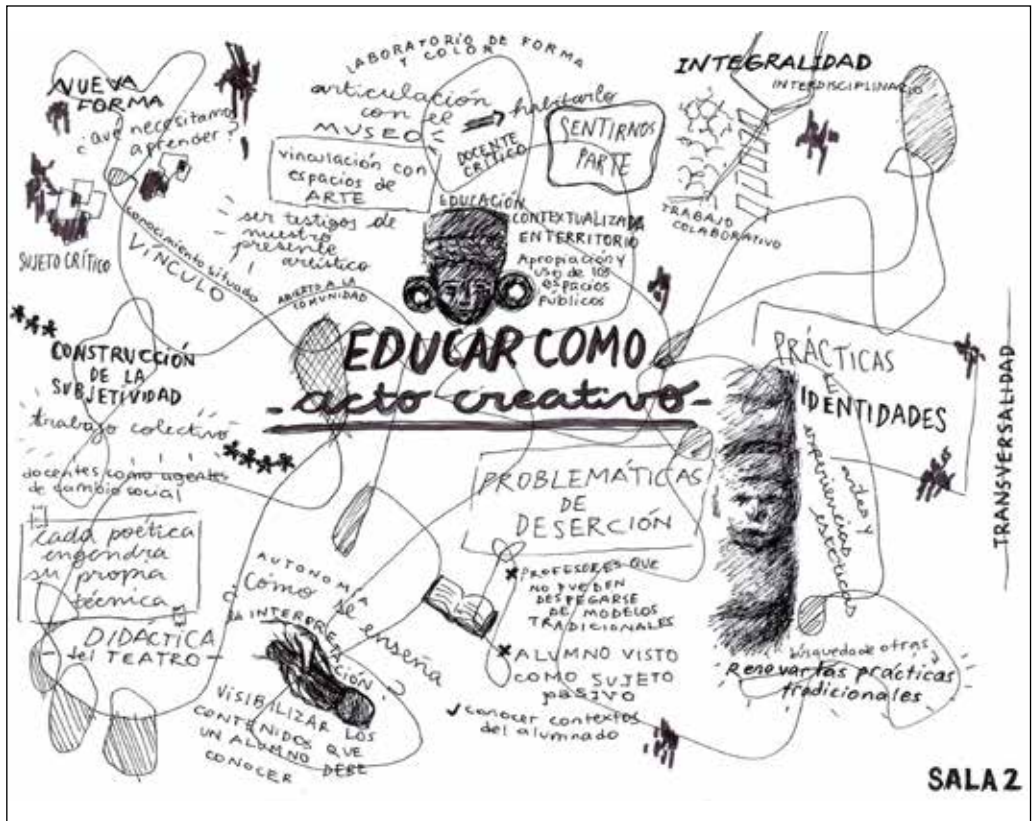 LABORATORIO DE FORMA
Y COLOR
NUEVA
FORMA
¿qué necesitamos
aprender?
SUJETO CRÍTICO
conocimiento situado
VÍNCULO
articulación
con el
MUSEO
habitarlo
DOCENTE
CRÍTICO
SENTIRNOS
PARTE
vinculación con
espacios de
ARTE
ser testigos de
nuestro
presente
artístico
ABIERTO A LA
COMUNIDAD
EDUCACIÓN
CONTEXTUALIZADA
EN TERRITORIO
Apropiación y
uso de los
espacios
públicos
INTEGRALIDAD
INTERDISCIPLINARIO
TRABAJO
COLABORATIVO
EDUCAR COMO
- acto creativo -
CONSTRUCCIÓN
DE LA
SUBJETIVIDAD
trabajo colectivo
docentes como agentes
de cambio social
cada poética
engendra
su propia
técnica
DIDÁCTICA
del TEATRO
AUTONOMÍA
¿Cómo se enseña
la INTERPRETACIÓN?
VISIBILIZAR LOS
CONTENIDOS QUE
UN ALUMNO DEBE
CONOCER
PROBLEMÁTICAS
DE
DESERCIÓN
x PROFESORES QUE
NO PUEDEN
DESPEGARSE
DE MODELOS
TRADICIONALES
x ALUMNO VISTO
COMO SUJETO
pasivo
✓ conocer contextos
del alumnado
PRÁCTICAS
IDENTIDADES
artes y
experiencias
estéticas
TRANSVERSALIDAD
búsqueda de otras
Renovar las prácticas
tradicionales
SALA 2